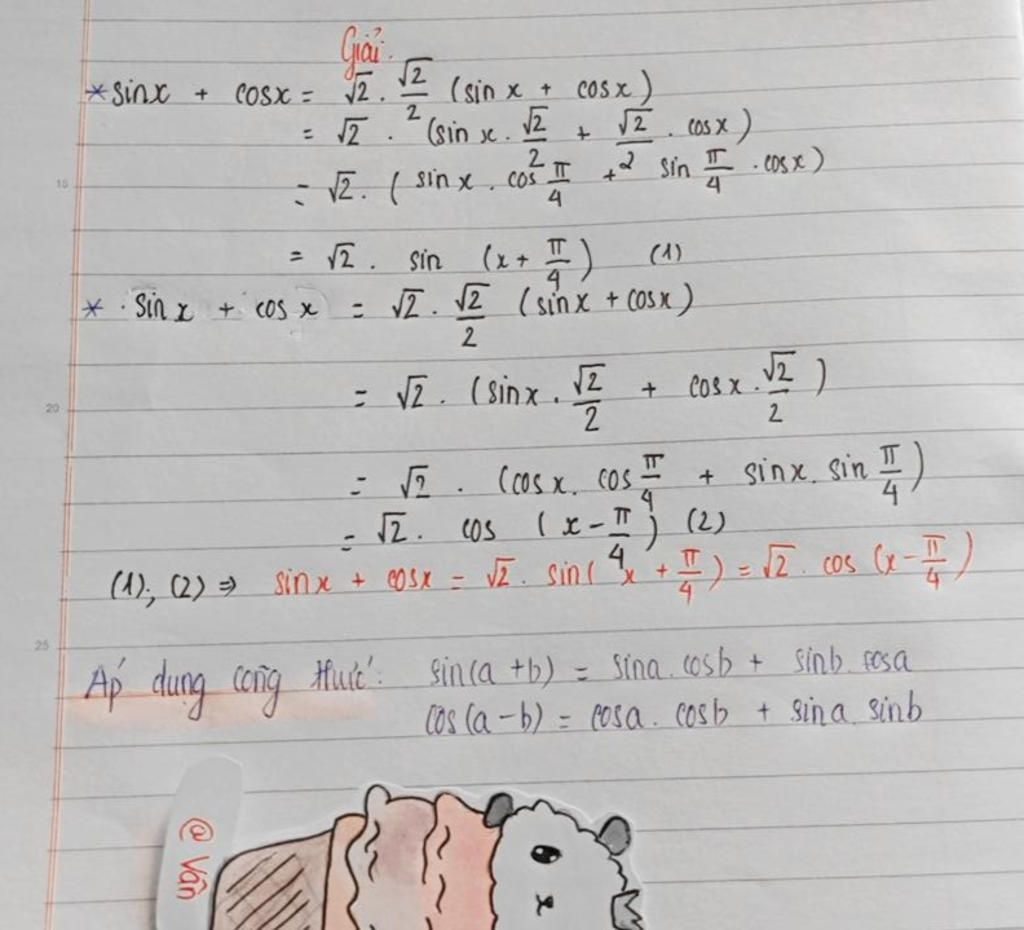 Giải.
* sinx + cosx = √2 . √2/2 (sin x + cosx)
= √2 . (sin x . √2/2 + √2/2 . cosx)
= √2 . (sinx . cos π/4 + sin π/4 . cosx)
= √2 . sin (x + π/4) (1)
* . sinx + cos x = √2 . √2/2 (sinx + cosx)
= √2 . (sinx . √2/2 + cosx . √2/2)
= √2 . (cosx . cos π/4 + sinx . sin π/4)
= √2 . cos (x - π/4) (2)
(1), (2) ⇒ sinx + cosx = √2 . sin(x + π/4) = √2 . cos (x - π/4)
Áp dụng công thức: sin(a + b) = sina . cosb + sinb . cosa
cos(a - b) = cosa . cosb + sina . sinb
@ Vân
15
20
25